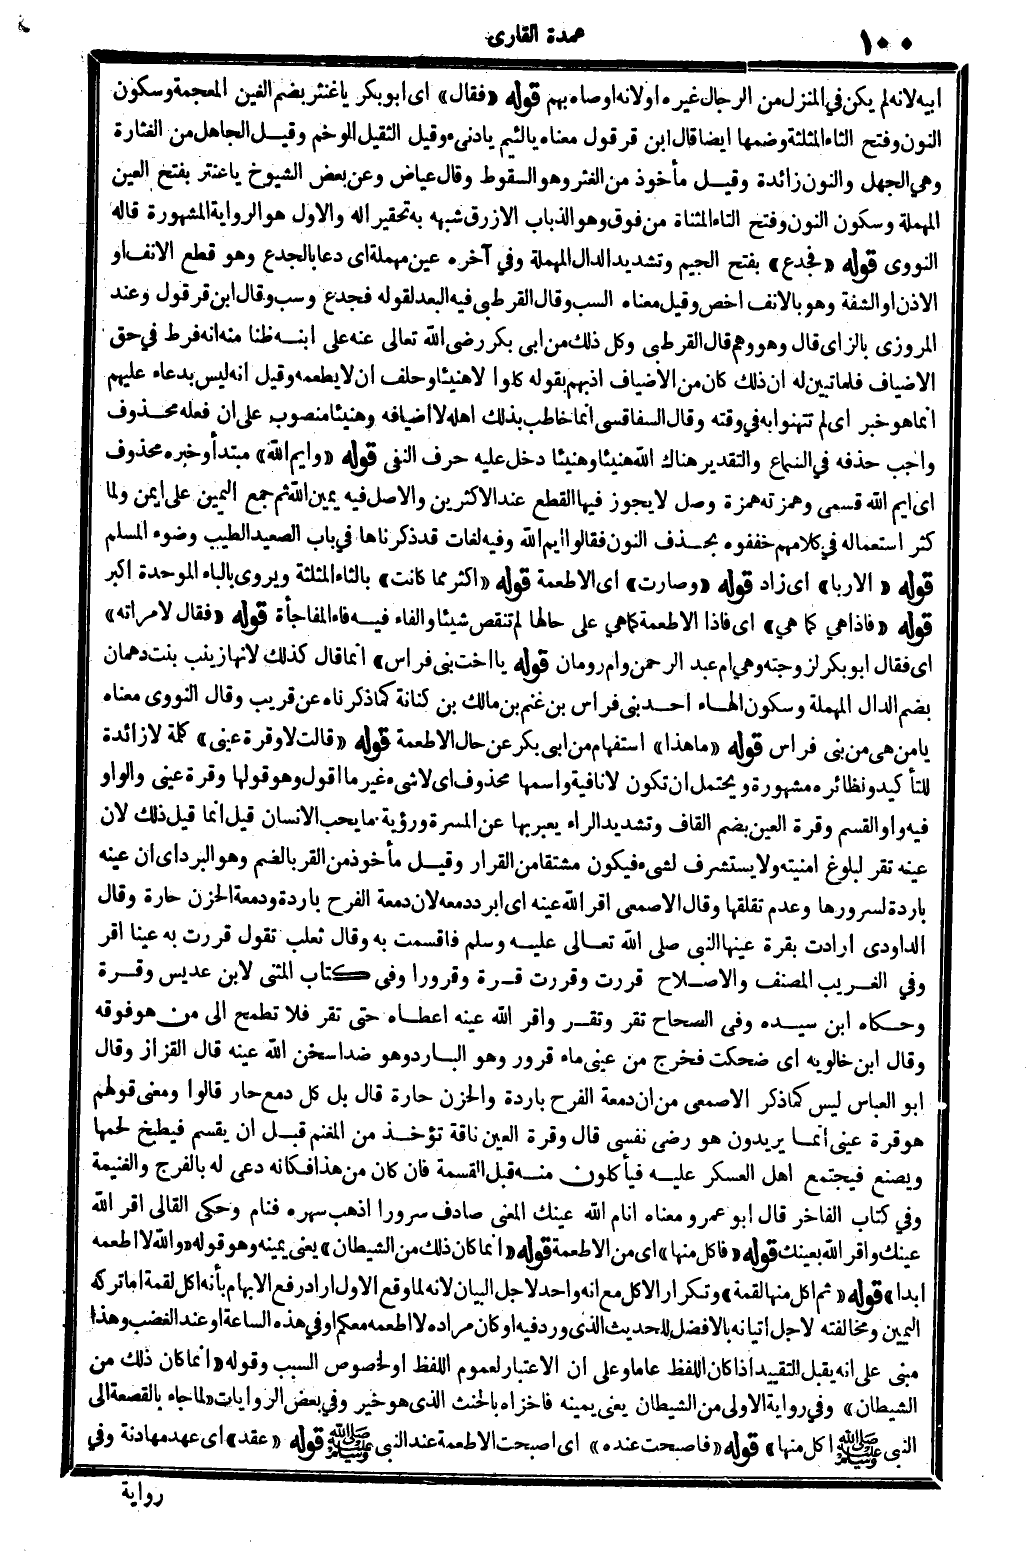 ١٠٠
عمدة القارى
ابيه لانه لم يكن في المنزل من الرجال غيره او لانه اوصاه بهم قوله «فقال» اى ابو بكر ياغنثر بضم الغين المعجمة وسكون
النون وفتح الثاء المثلثة وضمها ايضا قال ابن قرقول معناه يالئيم يادنىء وقيل الثقيل الوخم وقيـل الجاهل من الغثارة
وهي الجهل والنون زائدة وقيـل مأخوذ من الغثر وهو السقوط وقال عياض وعن بعض الشيوخ ياعنتر بفتح العين
المهملة وسكون النون وفتح التاء المثناة من فوق وهو الذباب الازرق شبهه به تحقيرا له والاول هو الرواية المشهورة قاله
النووى قوله «فجدع» بفتح الجيم وتشديد الدال المهملة وفي آخره عين مهملة اى دعا بالجدع وهو قطع الانف او
الاذن او الشفة وهو بالانف اخص وقيل معناه السب وقال القرطبي فيه البعد لقوله فجدع وسب وقال ابن قرقول وعند
المروزى بالزاى قال وهو وهم قال القرطبي وكل ذلك من ابى بكر رضى الله تعالى عنه على ابنـه ظنا منه انه فرط في حق
الاضياف فلما تبين له ان ذلك كان من الاضياف ادبهم بقوله كلوا لا هنيئا وحلف ان لا يطعمه وقيل انه ليس بدعاء عليهم
انما هو خبر اى لم تتهنوا به في وقته وقال السفاقسى انما خاطب بذلك اهله لا اضيافه وهنيئا منصوب على ان فعله محـذوف
واجب حذفه في السماع والتقدير هناك الله هنيئا وهنيئا دخل عليه حرف النفى قوله «وايم الله» مبتدأ وخبره محذوف
اى ايم الله قسمى وهمزته همزة وصل لا يجوز فيها القطع عند الاكثرين والاصل فيه يمين الله ثم جمع اليمين على ايمن ولما
كثر استعماله في كلامهم خففوه بحـذف النون فقالوا ايم الله وفيه لغات قد ذكرناها في باب الصعيد الطيب وضوء المسلم
قوله «الا ربا» اى زاد قوله «وصارت» اى الاطعمة قوله «اكثر مما كانت» بالثاء المثلثة ويروى بالباء الموحدة اكبر
قوله «فاذا هي كما هي» اى فاذا الاطعمة كما هي على حالها لم تنقص شيئا والفاء فيـه فاء المفاجأة قوله «فقال لامراته»
اى فقال ابو بكر لزوجته وهي ام عبد الرحمن وام رومان قوله يا اخت بنى فراس» انما قال كذلك لانها زينب بنت دهمان
بضم الدال المهملة وسكون الهـاء احـد بنى فراس بن غنم بن مالك بن كنانة كما ذكرناه عن قريب وقال النووى معناه
يا من هى من بنى فراس قوله «ما هذا» استفهام من ابى بكر عن حال الاطعمة قوله «قالت لا وقرة عينى» كلمة لا زائدة
للتأكيد ونظائره مشهورة ويحتمل ان تكون لا نافية واسمها محذوف اى لا شىء غير ما اقول وهو قولها وقرة عينى والواو
فيه واو القسم وقرة العين بضم القاف وتشديد الراء يعبر بها عن المسرة ورؤية ما يحب الانسان قيل انما قيل ذلك لان
عينه تقر لبلوغ امنيته ولا يستشرف لشىء فيكون مشتقا من القرار وقيـل مأخوذ من القر بالضم وهو البرد اى ان عينه
باردة لسرورها وعدم تقلقها وقال الاصمعى اقر الله عينه اى ابرد دمعه لان دمعة الفرح باردة ودمعة الحزن حارة وقال
الداودى ارادت بقرة عينها النبى صلى الله تعـالى عليـه وسلم فاقسمت به وقال ثعلب تقول قررت به عينا اقر
وفي الغـريب المصنف والاصـلاح قررت وقررت قـرة وقرورا وفي كتاب المثنى لابن عديس وقـرة
وحـكاه ابن سيـده وفى الصحاح تقر وتقـر واقر الله عينه اعطـاه حتى تقر فلا تطمح الى من هو فوقه
وقال ابن خالويه اى ضحكت فخرج من عينى ماء قرور وهو البـارد وهو ضد اسخن الله عينه قال القزاز وقال
ابو العباس ليس كما ذكر الاصمعى من ان دمعة الفرح باردة والحزن حارة قال بل كل دمع حار قالوا ومعنى قولهم
هو قرة عينى انمـا يريدون هو رضى نفسى قال وقرة العين ناقة تؤخـذ من المغنم قبـل ان يقسم فيطبخ لحمها
ويصنع فيجتمع اهل العسكر عليـه فيأكلون منـه قبل القسمة فان كان من هذا فكانه دعى له بالفرج والغنيمة
وفي كتاب الفاخر قال ابو عمرو معناه انام الله عينك المعنى صادف سرورا اذهب سهره فنام وحكى القالى اقر الله
عينك واقر الله بعينك قوله «فاكل منها» اى من الاطعمة قوله «انما كان ذلك من الشيطان» يعنى يمينه وهو قوله «والله لا اطعمه
ابدا» قوله «ثم اكل منها لقمة» وتكرار الاكل مع انه واحد لاجل البيان لانه لما وقع الاول اراد رفع الابهام بأنه اكل لقمة اما تركه
اليمين ومخالفته لاجل اتيانه بالافضل للحديث الذى ورد فيه او كان مراده لا اطعمه معكم او في هذه الساعة او عند الغضب وهذا
مبنى على انه يقبل التقييد اذا كان اللفظ عاما وعلى ان الاعتبار لعموم اللفظ او لخصوص السبب وقوله «انما كان ذلك من
الشيطان» وفي رواية الاولى من الشيطان يعنى يمينه فاخزاه بالحنث الذى هو خير وفي بعض الروايات «لما جاء بالقصعة الى
النبى ﷺ اكل منها» قوله «فاصبحت عنده» اى اصبحت الاطعمة عند النبى ﷺ قوله «عقد» اى عهد مهادنة وفي
رواية